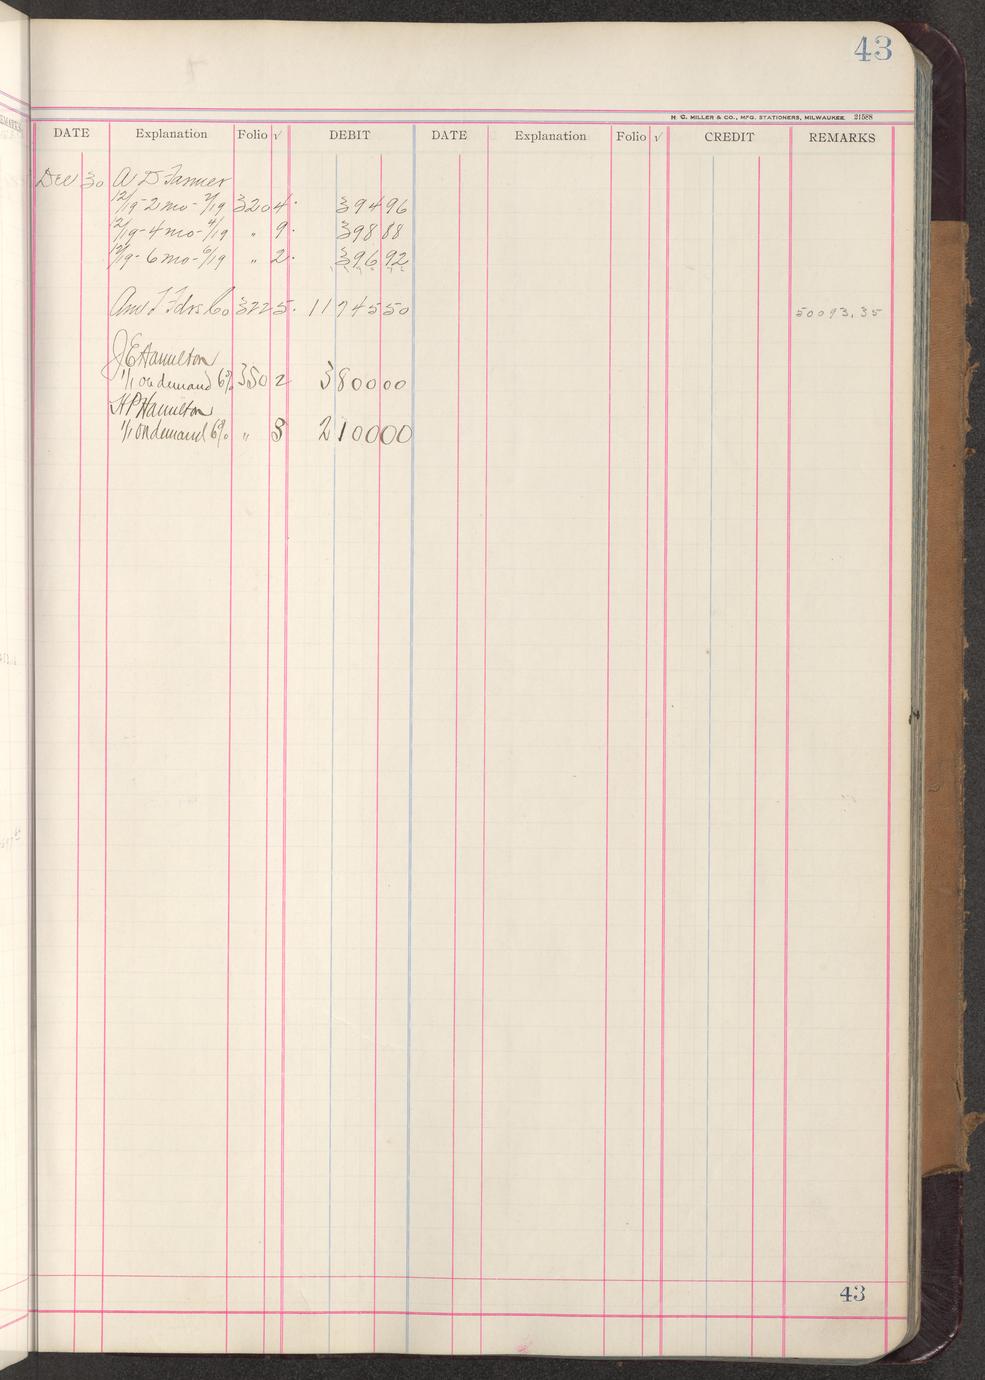 43
H. G. MILLER & CO., MFG. STATIONERS, MILWAUKEE 21588
DATE Explanation Folio √ DEBIT DATE Explanation Folio √ CREDIT REMARKS
Dec 30 A D Farmer
12/19-2 mo-2/19 3204 394 96
12/19-4 mo-4/19 " 9 398 88
12/19-6 mo-6/19 " 2 396 92
Am T Fdrs Co 3225 11745 50 50093.35
J E Hamilton
1/1 on demand 6% 3502 3800 00
H P Hamilton
1/1 on demand 6% " 3 2100 00
43